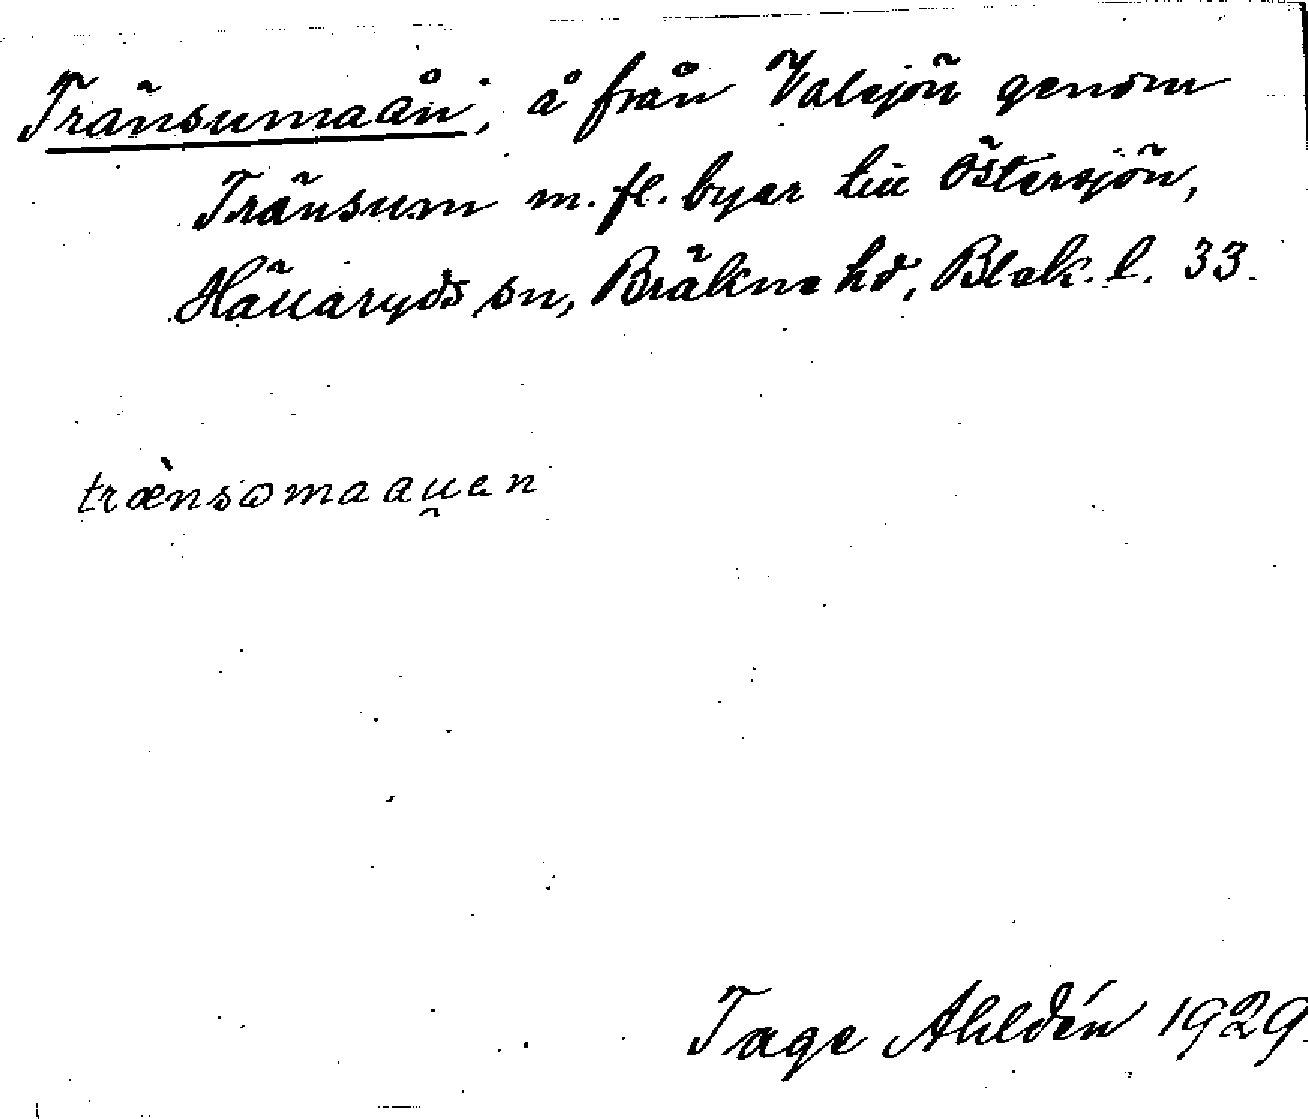 Tränsumaån, å från Valsjön genom
Tränsum m. fl. byar till Östersjön,
Hällaryds sn, Bräkne hd, Blek. l. 33.
trænsomaauen
Tage Ahldén 1929.